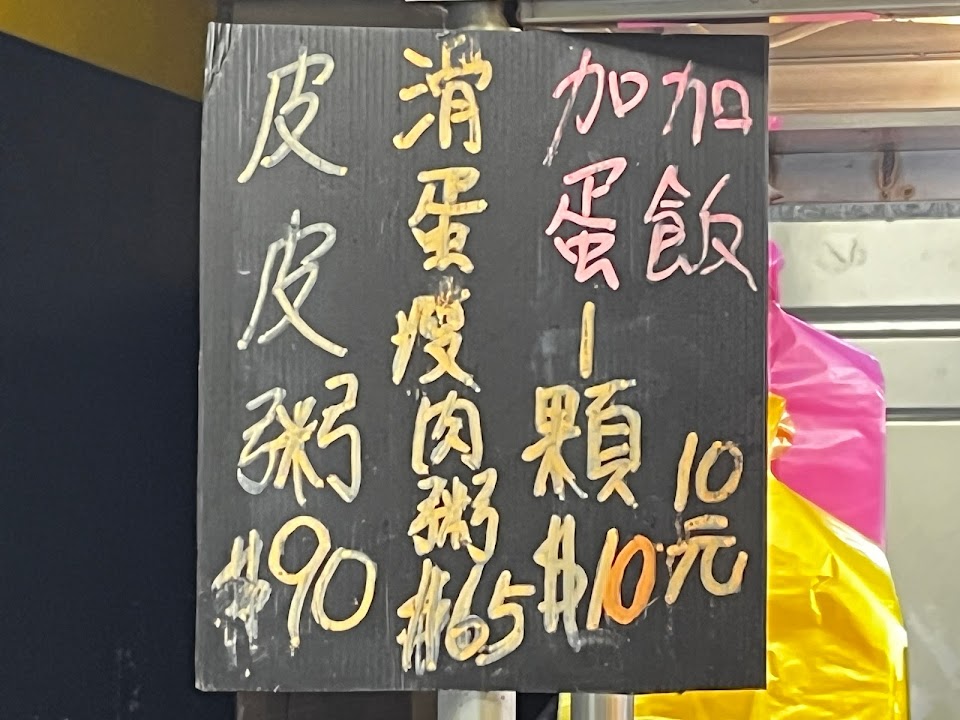 加飯10元
加蛋1顆$10
滑蛋瘦肉粥$65
皮皮粥$90